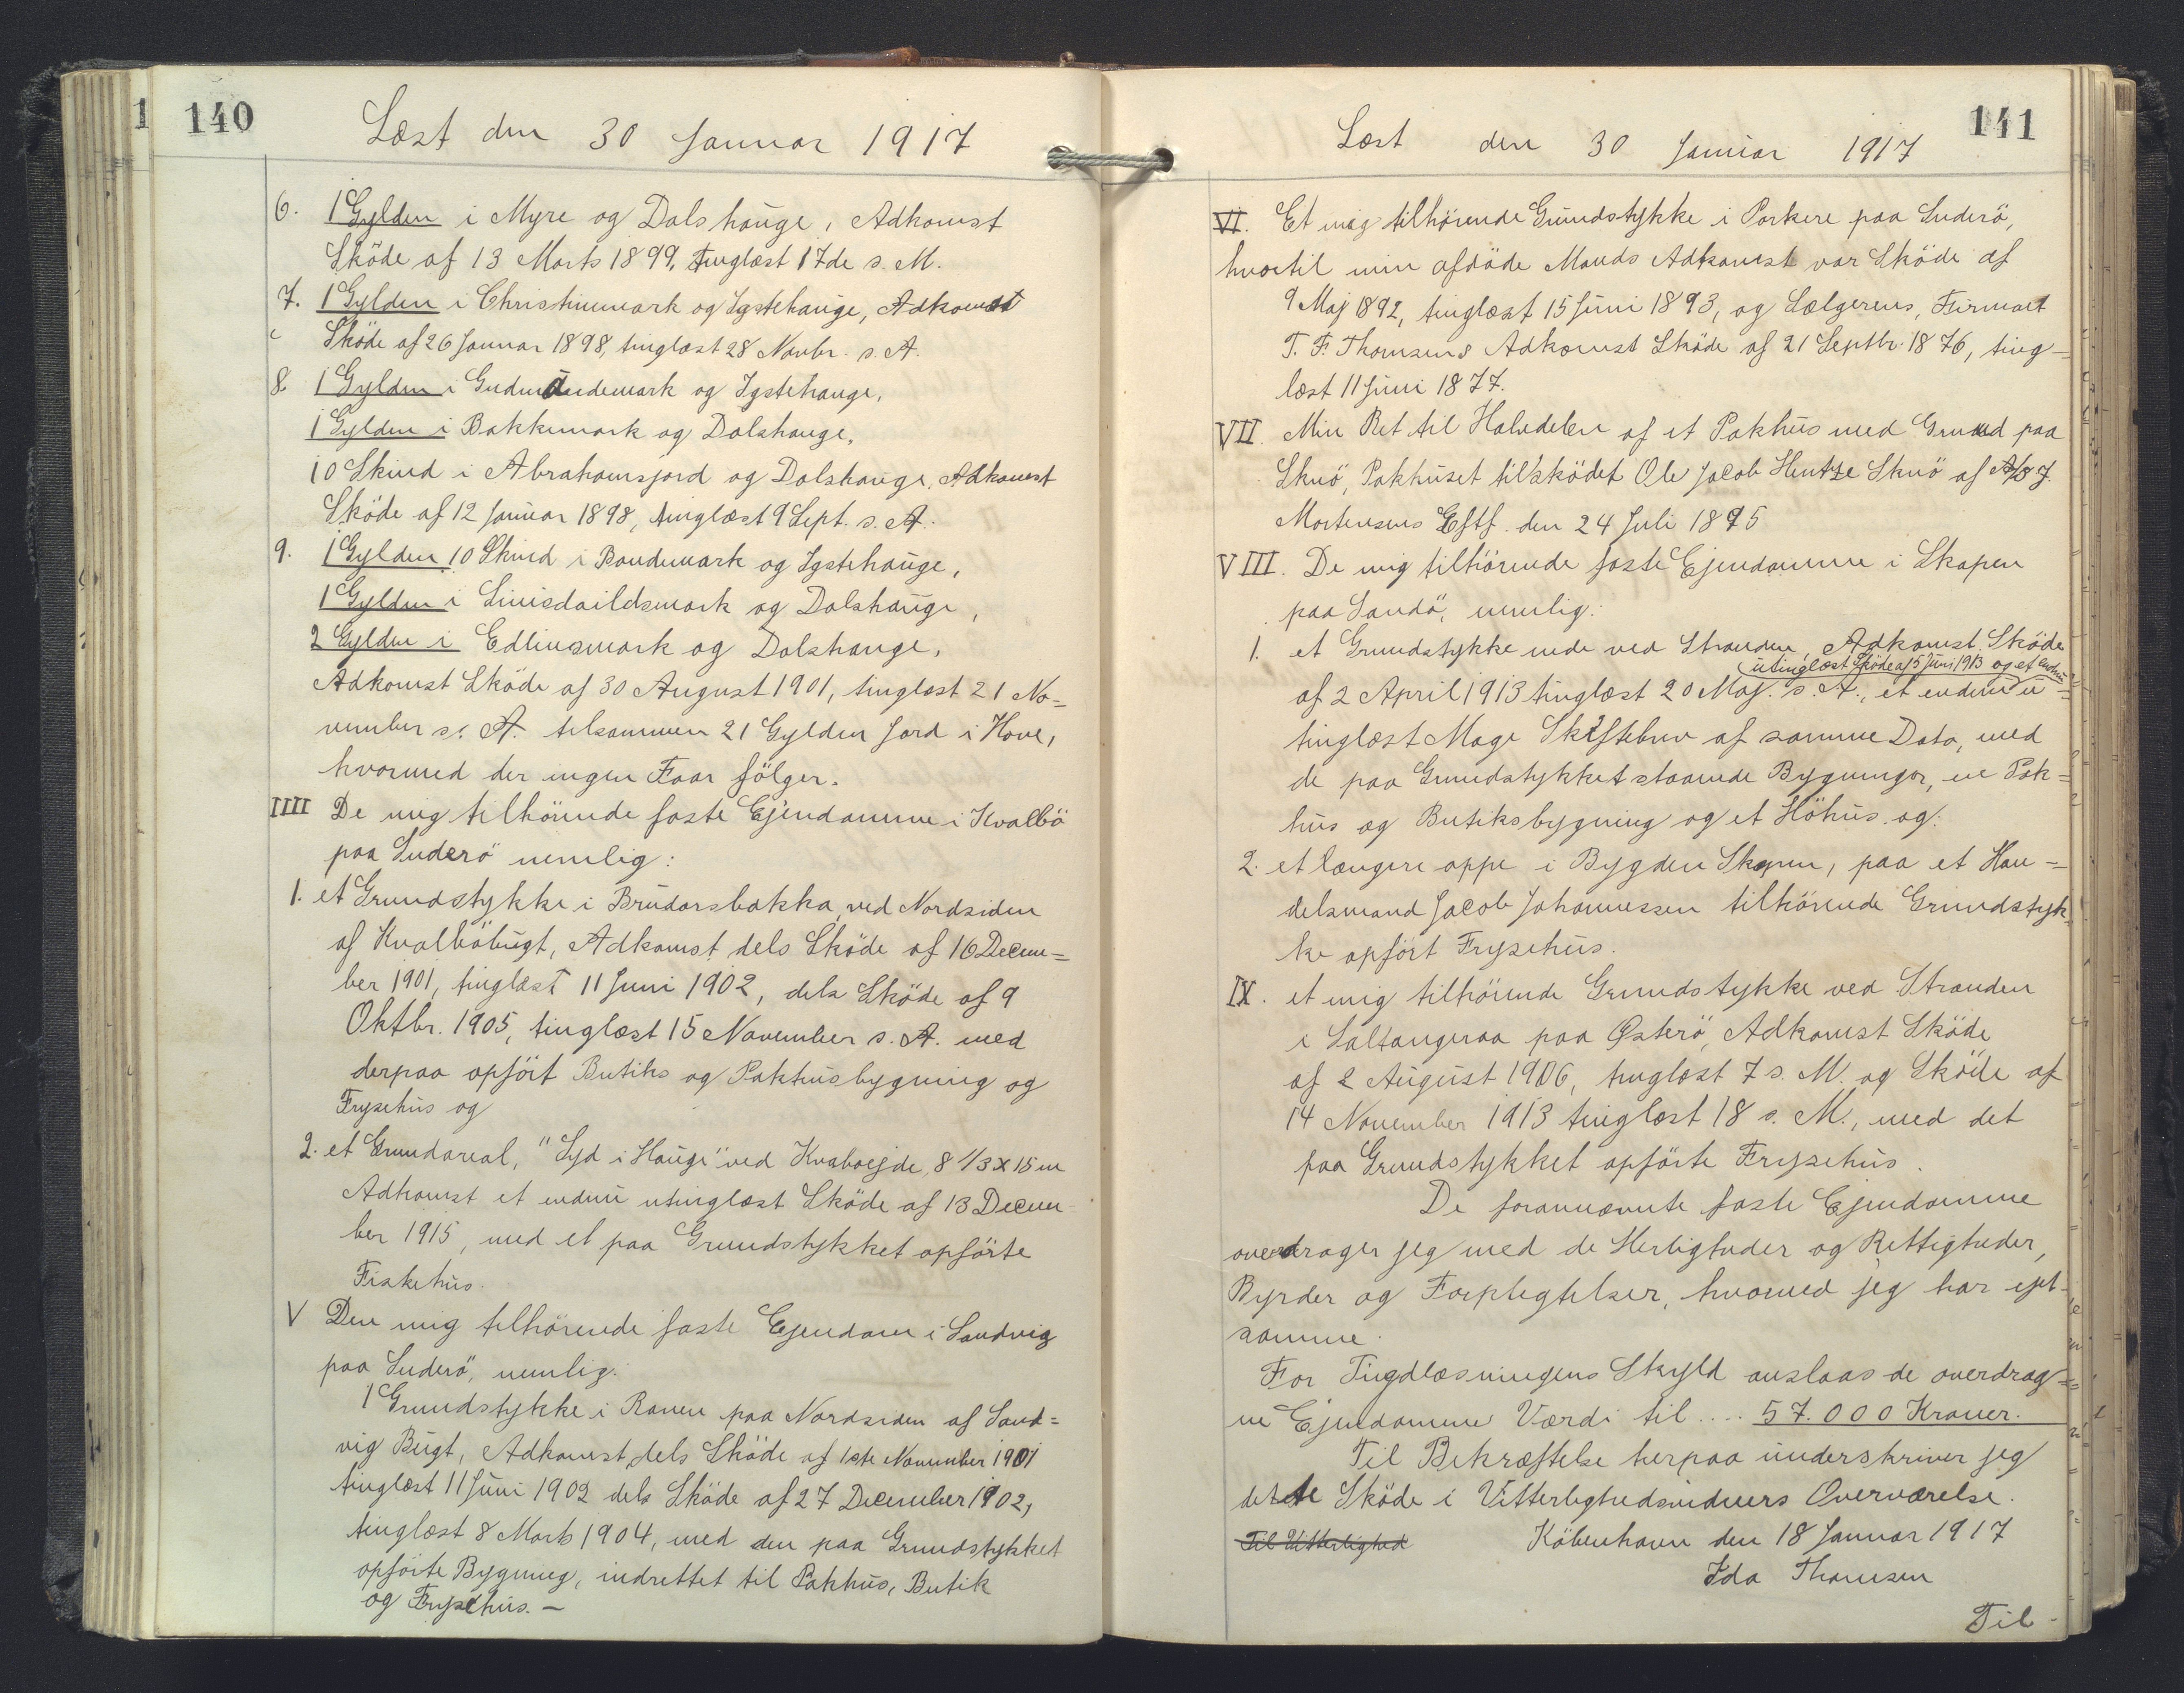 140
Læst den 30 Januar 1917
6. 1 Gylden i Myre og Dalshauge, Adkomst
Sköde af 13 Marts 1899, tinglæst 17de s. M.
7. 1 Gylden i Christinmark og Igstehauge, Adkomst
Sköde af 26 Januar 1898, tinglæst 28 Novbr. s. A.
8. 1 Gylden i Gudmundemark og Igstehauge,
1 Gylden i Bakkemark og Dalshauge,
10 Skind i Abrahamsjord og Dalshauge, Adkomst
Sköde af 12 Januar 1898, tinglæst 9 Sept. s. A.
9. 1 Gylden 10 Skind i Bondemark og Igstehauge,
1 Gylden i og Dalshauge,
2 Gylden i Edlinsmark og Dalshauge,
Adkomst Sköde af 30 August 1901, tinglæst 21 No=
vember s. A. tilsammen 21 Gylden Jord i Hove,
hvormed der ingen Faar fölger.
IIII De mig tilhörende faste Ejendomme i Kvalbö
paa Suderö nemlig:
1. et Grundstykke i Brudarsbakka ved Nordsiden
af Kvalböbugt, Adkomst dels Sköde af 16 Decem=
ber 1901, tinglæst 11 Juni 1902, dels Sköde af 9
Oktbr. 1905, tinglæst 15 November s. A. med
derpaa opfört Butiks og Pakhusbygning og
Frysehus og
2. et Grundareal, "Syd i Hauge" ved Kvalboejde, 8 1/3 x 15 m
Adkomst et endnu utinglæst Sköde af 13 Decem-
ber 1915, med et paa Grundstykket opförte
Fiskehus.
V Den mig tilhörende faste Ejendom i Sandvig
paa Suderö, nemlig:
1 Grundstykke i Ranen paa Nordsiden af Sand=
vig Bugt, Adkomst dels Sköde af 1ste November 1901
tinglæst 11 Juni 1902 dels Sköde af 27 December 1902,
tinglæst 8 Marts 1904, med den paa Grundstykket
opförte Bygning, indrettet til Pakhus, Butik
og Frysehus. —
141
Læst den 30 Januar 1917
VI. Et mig tilhörende Grundstykke i Porkere paa Suderö,
hvortil min afdöde Mands Adkomst var Sköde af
9 Maj 1892, tinglæst 15 Juni 1893, og Sælgerens, Firmaet
T. F. Thomsens Adkomst Sköde af 21 Septbr. 1876, ting=
læst 11 Juni 1877.
VII. Min Ret til Halvdelen af et Pakhus med Grund paa
Skuö, Pakhuset tilsködet Ole Jacob Hentze Skuö af A/S J.
Mortensens Eftf. den 24 Juli 1895
VIII. De mig tilhörende faste Ejendomme i Skapen
paa Sandö, nemlig:
1. et Grundstykke nede ved Stranden, Adkomst Sköde
utinglæst Sköde af 5 Juni 1913 og et endnu
af 2 April 1913 tinglæst 20 Maj. s. A., et endnu u=
tinglæst Mage Skiftebrev af samme Dato, med
de paa Grundstykket staaende Bygninger, en Pak=
hus og Butiksbygning og et Höhus og:
2. et længere oppe i Bygden Skapen, paa et Han=
delsmand Jacob Johannessen tilhörende Grundstyk=
ke opfört Frysehus.
IX. et mig tilhörende Grundstykke ved Stranden
i Saltangeraa paa Österö, Adkomst Sköde
af 2 August 1906, tinglæst 7 s. M. og Sköde af
14 November 1913 tinglæst 18 s. M., med det
paa Grundstykket opförte Frysehus.
De forannævnte faste Ejendomme
overdrager jeg med de Herligheder og Rettigheder,
Byrder og Forpligtelser, hvormed jeg har ejet
samme.
For Tinglæsningens Skyld anslaas de overdrag=
ne Ejendomme Værdi til .... 57.000 Kroner.
Til Bekræftelse herpaa underskriver jeg
dette Sköde i Vitterlighedsvidners Overværelse.
Til Vitterlighed Köbenhavn den 18 Januar 1917
Ida Thomsen
Til